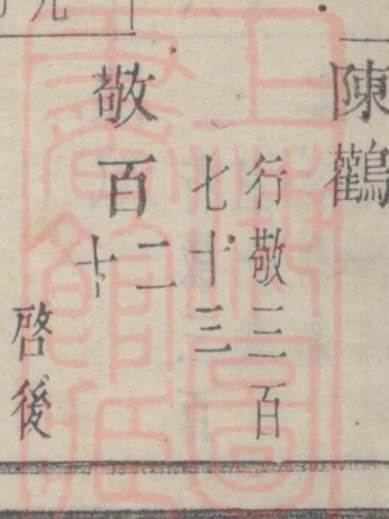 陳鸛
行敬三百
七十三
敬百二
十
啓後